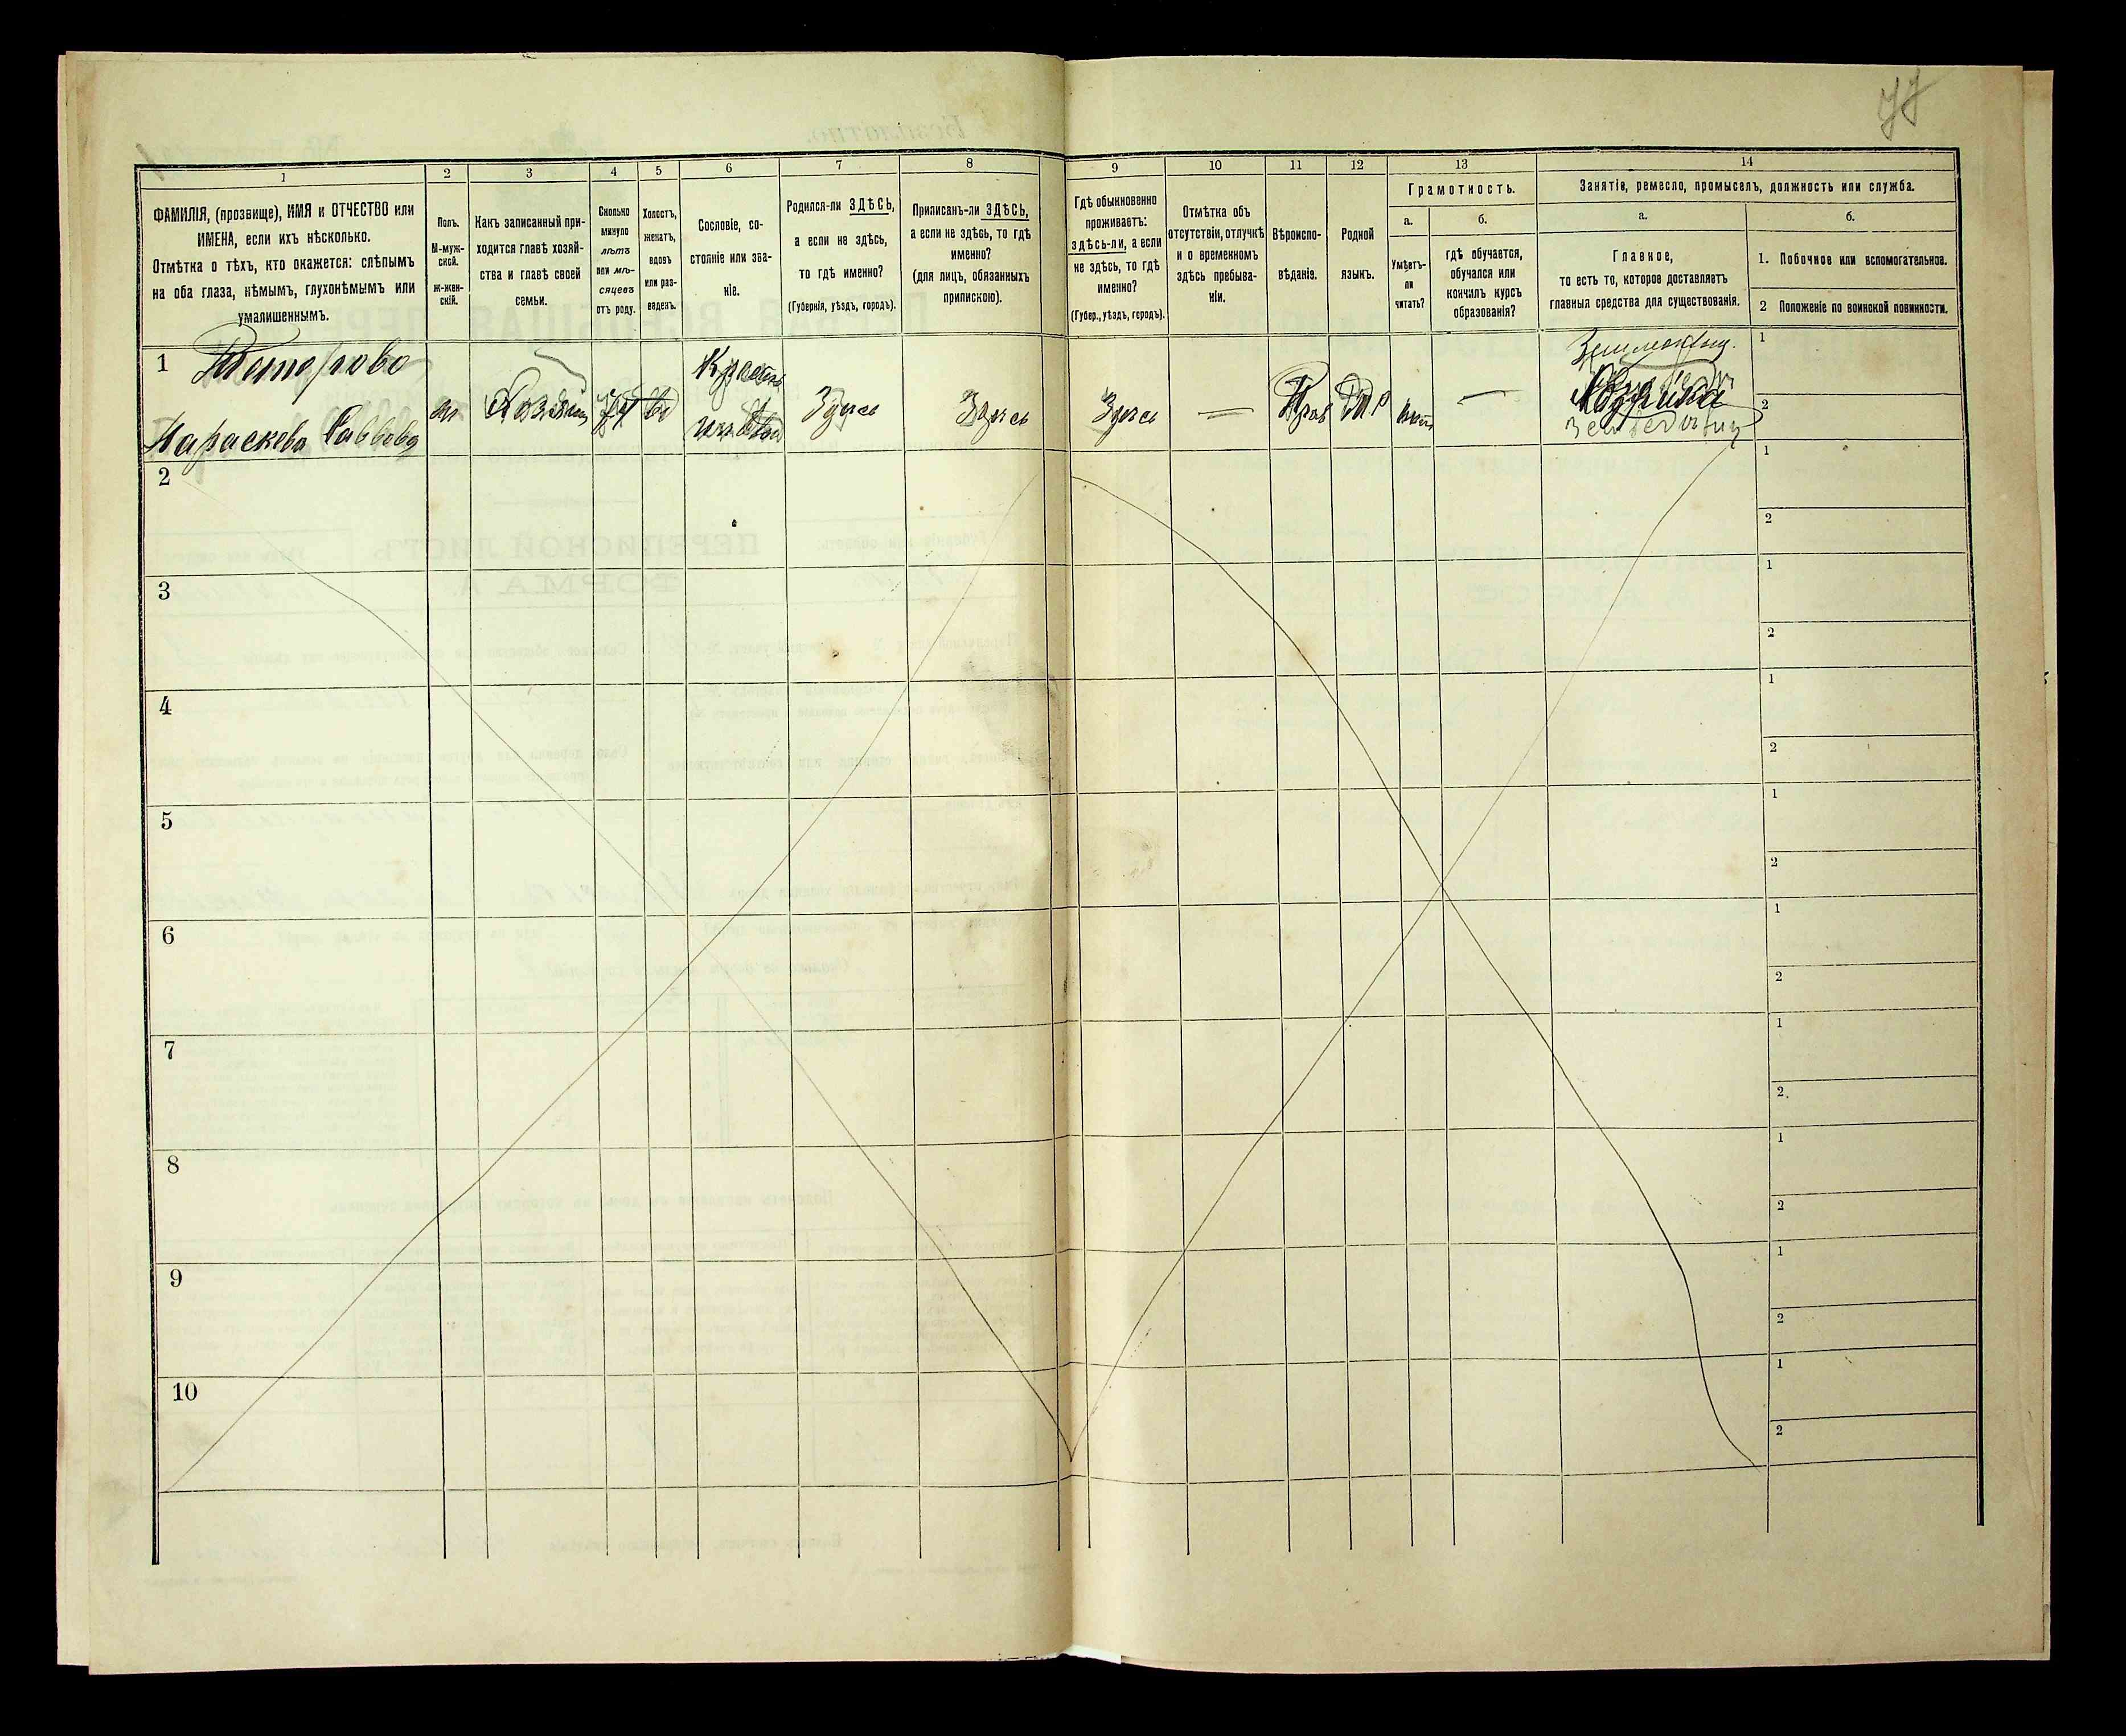 1
2
3
4
5
6
7
8
9
10
11
12
13
14
ФАМИЛІЯ, (прозвище), ИМЯ и ОТЧЕСТВО или
ИМЕНА, если ихъ нѣсколько.
Отмѣтка о тѣхъ, кто окажется: слѣпымъ
на оба глаза, нѣмымъ, глухонѣмымъ или
умалишеннымъ.
Полъ.
М-муж-
ской.
Ж-жен-
скій.
Какъ записанный при-
ходится главѣ хозяй-
ства и главѣ своей
семьи.
Сколько
минуло
лѣтъ
или мѣ-
сяцевъ
отъ роду.
Холостъ,
женатъ,
вдовъ
или раз-
веденъ.
Сословіе, со-
стояніе или зва-
ніе.
Родился-ли ЗДѢСЬ,
а если не здѣсь,
то гдѣ именно?
(Губернія, уѣздъ, городъ).
Приписанъ-ли ЗДѢСЬ,
а если не здѣсь, то гдѣ
именно?
(для лицъ, обязанныхъ
припискою).
Гдѣ обыкновенно
проживаетъ:
здѣсь-ли, а если
не здѣсь, то гдѣ
именно?
(Губер., уѣздъ, городъ).
Отмѣтка объ
отсутствіи, отлучкѣ
и о временномъ
здѣсь пребыва-
ніи.
Вѣроиспо-
вѣданіе.
Родной
языкъ.
Грамотность.
а.
Умѣетъ-
ли
читать?
б.
гдѣ обучается,
обучался или
кончилъ курсъ
образованія?
Занятіе, ремесло, промыселъ, должность или служба.
а.
Главное,
то есть то, которое доставляетъ
главныя средства для существованія.
б.
1. Побочное или вспомогательное.
2 Положеніе по воинской повинности.
1
Параскева Саввова
ж
74
вд
Здѣсь
Здѣсь
Здѣсь
—
Прав
М. Р
нѣтъ
—
1
2
2
1
2
3
1
2
4
1
2
5
1
2
6
1
2
7
1
2.
8
1
2
9
1
2
10
1
2